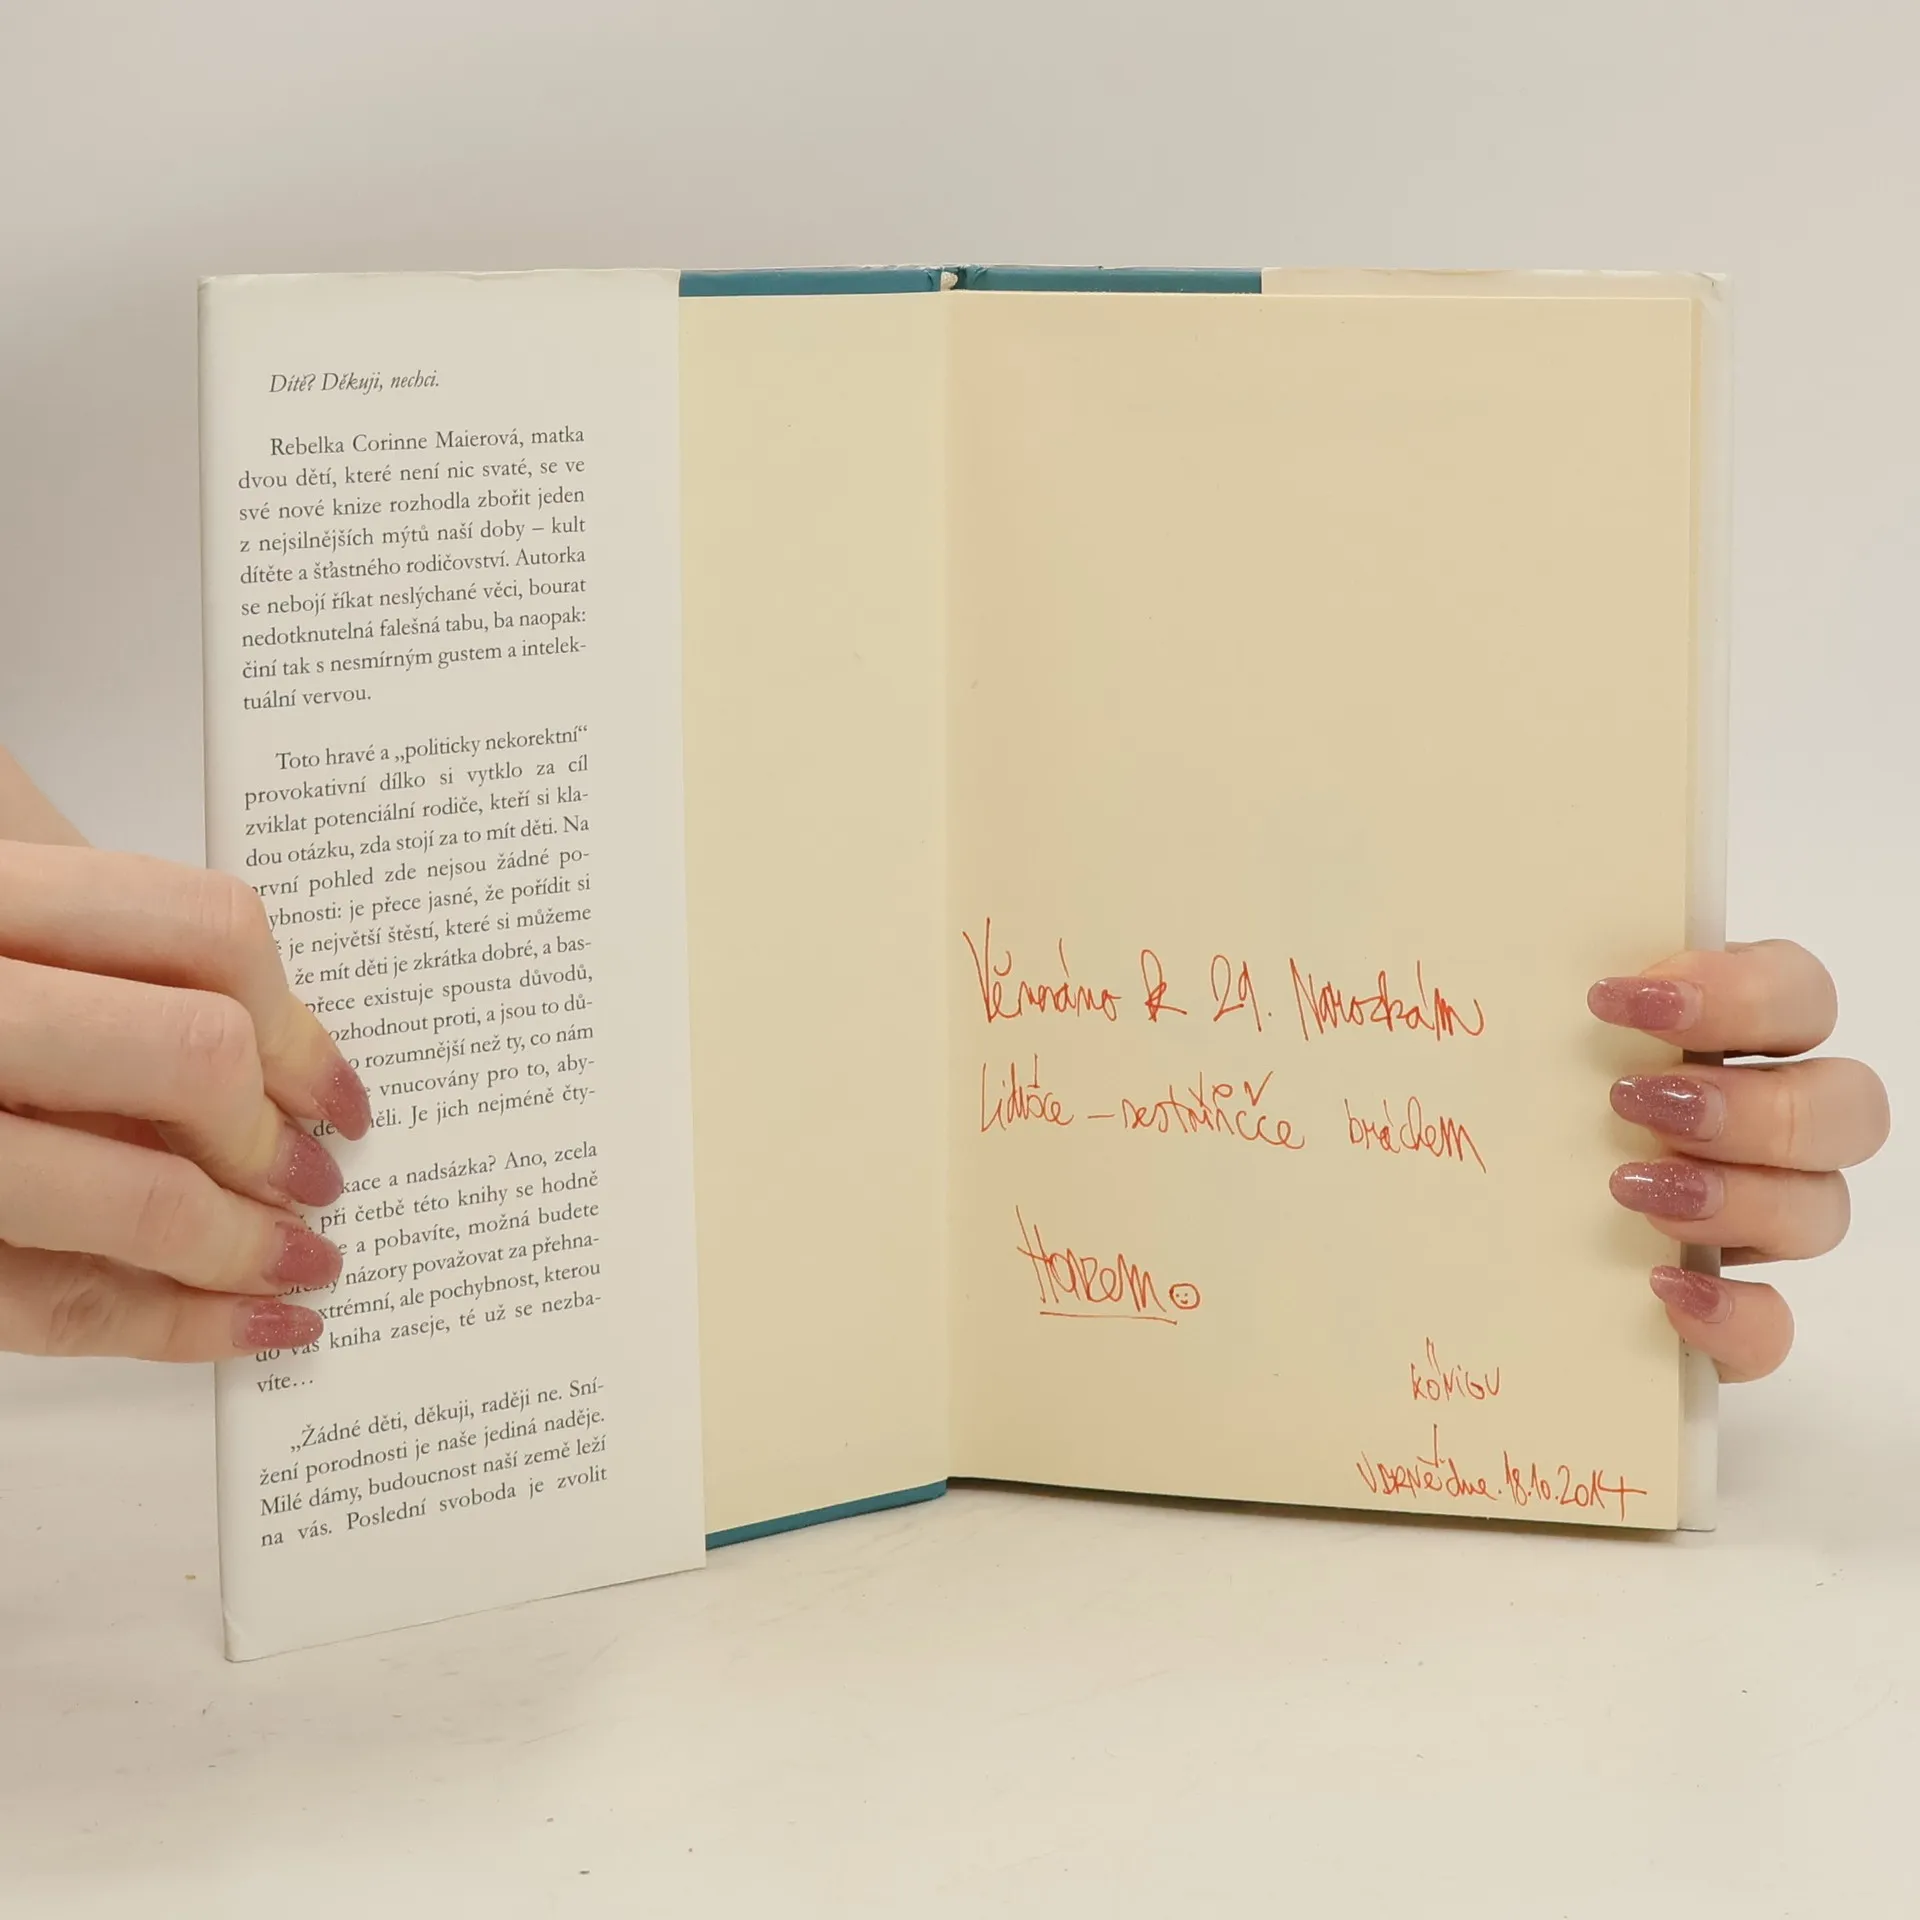 Dítě? Děkuji, nechci.
Rebelka Corinne Maierová, matka
dvou dětí, které není nic svaté, se ve
své nové knize rozhodla zbořit jeden
z nejsilnějších mýtů naší doby – kult
dítěte a šťastného rodičovství. Autorka
se nebojí říkat neslýchané věci, bourat
nedotknutelná falešná tabu, ba naopak:
činí tak s nesmírným gustem a intelek-
tuální vervou.
Toto hravé a „politicky nekorektní“
provokativní dílko si vytklo za cíl
zviklat potenciální rodiče, kteří si kla-
dou otázku, zda stojí za to mít děti. Na
první pohled zde nejsou žádné po-
ybnosti: je přece jasné, že pořídit si
je největší štěstí, které si můžeme
že mít děti je zkrátka dobré, a bas-
přece existuje spousta důvodů,
ozhodnout proti, a jsou to dů-
o rozumnější než ty, co nám
vnucovány pro to, aby-
ěli. Je jich nejméně čty-
kace a nadsázka? Ano, zcela
při četbě této knihy se hodně
e a pobavíte, možná budete
názory považovat za přehna-
xtrémní, ale pochybnost, kterou
do vás kniha zaseje, té už se nezba-
víte…
„Žádné děti, děkuji, raději ne. Sní-
žení porodnosti je naše jediná naděje.
Milé dámy, budoucnost naší země leží
na vás. Poslední svoboda je zvolit
Věnováno k 29. Narozkám
– sestřičce bráchem
Honzem
KÖNIGU
V BRNĚ dne. 18.10.2014